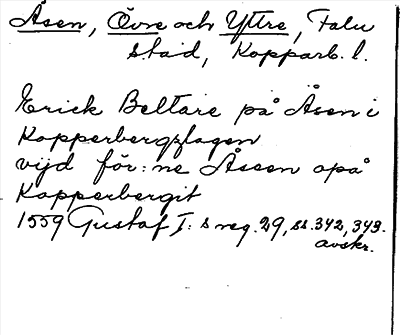 Åsen, Övre och Yttre, Falu
stad, Kopparb. l.
Erick Beltare på Åsen i
Kopperbergzlagen
vijd för:ne Åseen opå
Kopperbergit
1559 Gustaf I:s reg. 29, ss. 342, 343.
avskr.